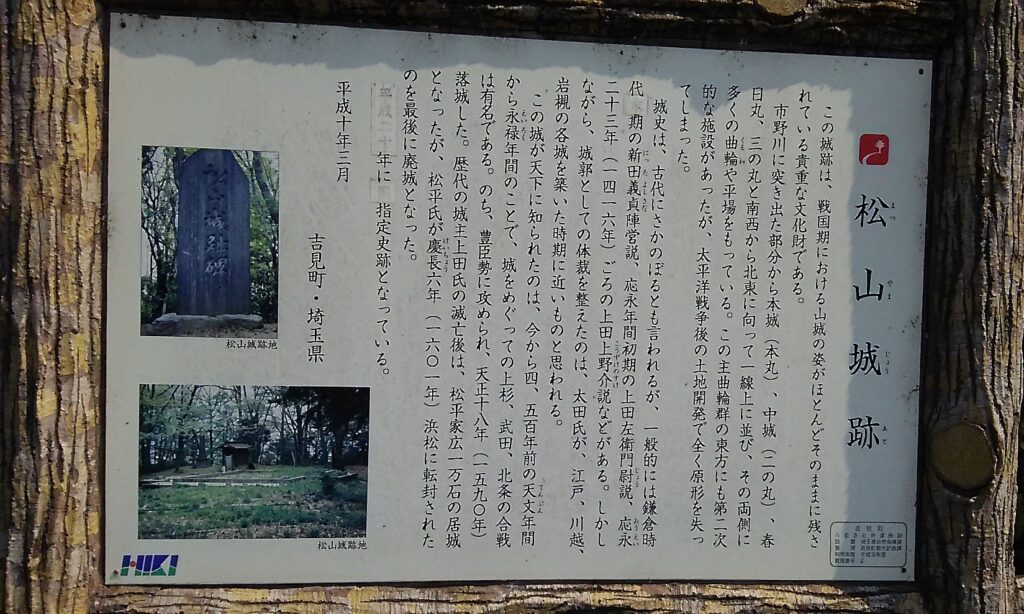 松山城跡
まつ やま じょう あと
この城跡は、戦国期における山城の姿がほとんどそのままに残さ
れている貴重な文化財である。
市野川に突き出た部分から本城（本丸）、中城（二の丸）、春
日丸、三の丸と南西から北東に向って一線上に並び、その両側に
多くの曲輪や平場をもっている。この主曲輪群の東方にも第二次
的な施設があったが、太平洋戦争後の土地開発で全く原形を失っ
てしまった。
城史は、古代にさかのぼるとも言われるが、一般的には鎌倉時
代 期の新田義貞陣営説、応永年間初期の上田左衛門尉説、応永
二十三年（一四一六年）ごろの上田上野介説などがある。しかし
ながら、城郭としての体裁を整えたのは、太田氏が、江戸、川越、
岩槻の各城を築いた時期に近いものと思われる。
この城が天下に知られたのは、今から四、五百年前の天文年間
から永禄年間のことで、城をめぐっての上杉、武田、北条の合戦
は有名である。のち、豊臣勢に攻められ、天正十八年（一五九〇年）
落城した。歴代の城主上田氏の滅亡後は、松平家広一万石の居城
となったが、松平氏が慶長六年（一六〇一年）浜松に転封された
のを最後に廃城となった。
平成二十年に 指定史跡となっている。
平成十年三月
吉見町・埼玉県
松山城跡碑
松山城跡地
松山城跡地
HIKI
吉見町